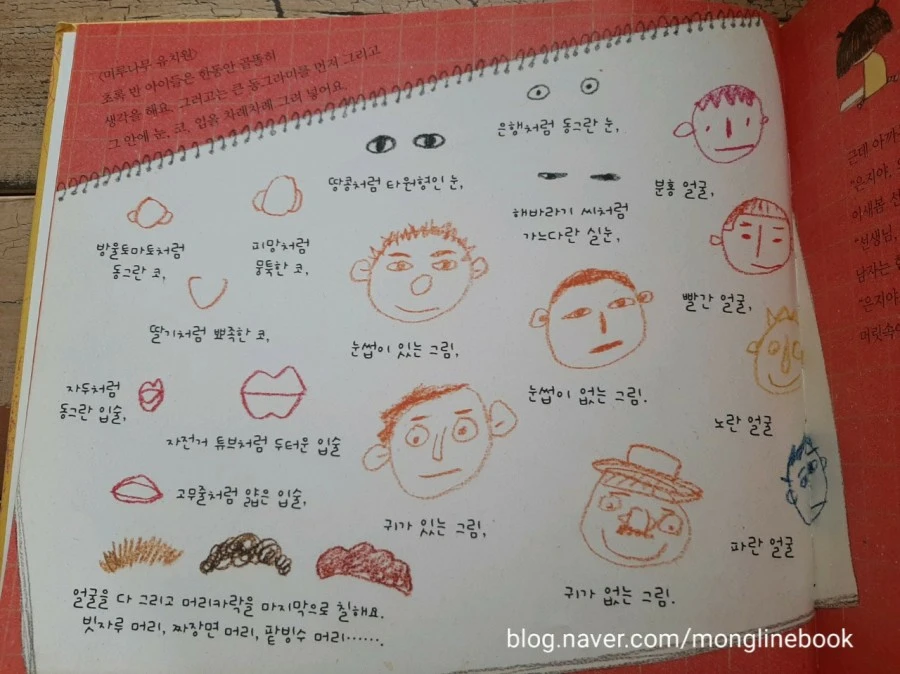 <미루나무 유치원>
초록 반 아이들은 한동안 곰똘히
생각을 해요. 그러고는 큰 동그라미를 먼저 그리고
그 안에 눈, 코, 입을 차례차례 그려 넣어요.
은행처럼 동그란 눈,
땅콩처럼 타원형인 눈,
해바라기 씨처럼
가느다란 실눈,
분홍 얼굴,
방울토마토처럼
동그란 코,
피망처럼
뭉툭한 코,
딸기처럼 뾰족한 코,
눈썹이 있는 그림,
빨간 얼굴,
자두처럼
동그란 입술,
자전거 튜브처럼 두터운 입술
눈썹이 없는 그림.
노란 얼굴
고무줄처럼 얇은 입술,
귀가 있는 그림,
파란 얼굴
귀가 없는 그림.
얼굴을 다 그리고 머리카락을 마지막으로 칠해요.
빗자루 머리, 짜장면 머리, 팥빙수 머리……
근데 아까
"은지야,
"선생님,
남자는
"은지야
머릿속
blog.naver.com/monglinebook